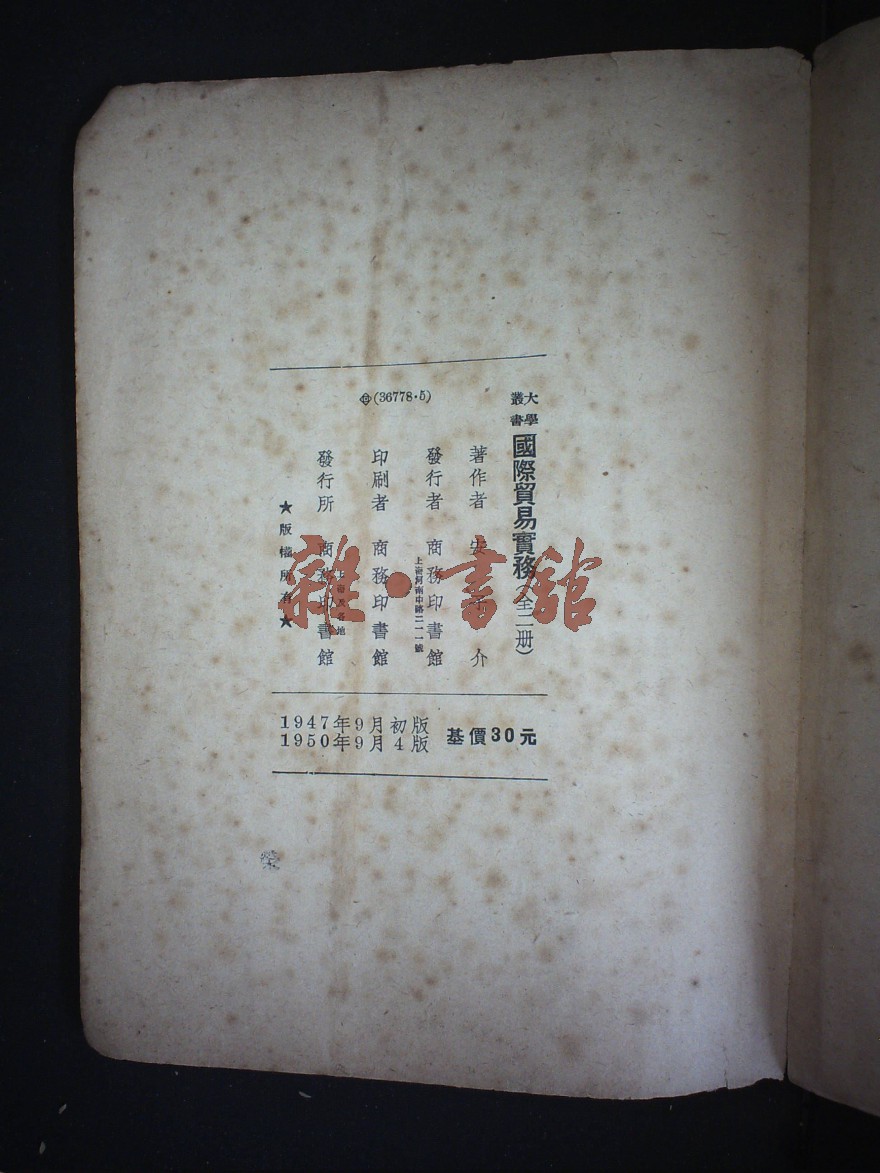 (36778·5)
大學
叢書
國際貿易實務(全二册)
著作者 安 介
發行者 商務印書館
上海河南中路二一一號
印刷者 商務印書館
發行所 商務印書館
各地
★版權所有★
1947年9月初版
1950年9月4版
基價30元
雜·書館